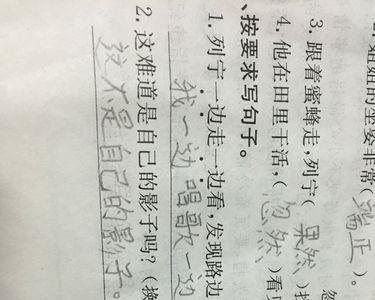 姐姐的坐姿非常(端正)。
3. 跟着蜜蜂走,列宁(果然)找
4. 他在田里干活,(忽然)看
、按要求写句子。
1. 列宁一边走一边看,发现路边
我一边唱歌一边
2. 这难道是自己的影子吗?(换
这不是自己的影子。